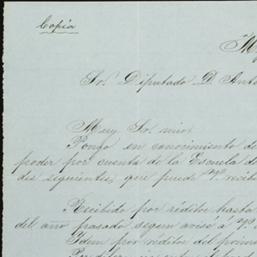 Copia
Sr. Diputado D. Anto
Muy Sr. mio:
Pongo en conocimiento de
poder por cuenta de la Escuela de
des siguientes, que puede Vd. recib
Recibido por réditos hasta
del año pasado segun aviso a Vd.
Idem por réditos del prim